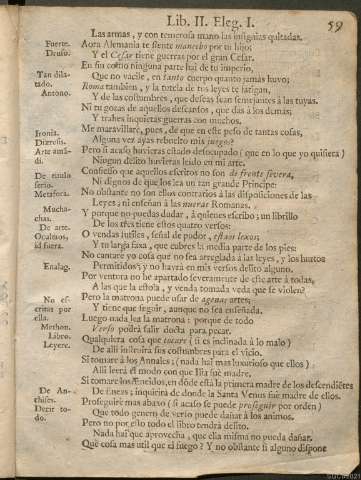 Lib. II. Eleg. I. 59
Las armas, y con temerosa mano las insignias quitadas.
Fuerte. Aora Alemania te siente mancebo por tu hijo;
Druso. Y el Cesar tiene guerras por el gran Cesar.
En fin como ninguna parte hai de tu imperio,
Tan dila- Que no vacile, en tanto cuerpo quanto jamàs huvo;
tado. Roma tambien, y la tutela de tus leyes te fatigan,
Antono. Y de las costumbres, que deseas sean semejantes à las tuyas.
Ni tu gozas de aquellos descansos, que das à los demàs;
Y trahes inquietas guerras con muchos.
Ironia. Me maravillarè, pues, de que en este peso de tantas cosas,
Diæresis. Alguna vez ayas rebuelto mis juegos?
Arte amã- Pero si acaso huvieras estado desocupado (que en lo que yo quisiera)
di. Ningun delito huvieras leido en mi arte.
De titulo Confieso que aquellos escritos no son de frente severa,
serio. Ni dignos de que los lea un tan grande Principe:
Metafora. No obstante no son ellos contrarios à las disposiciones de las
Leyes; ni enseñan à las nueras Romanas.
Mucha- Y porque no puedas dudar, à quienes escribo; un librillo
chas. De los tres tiene estos quatro versos:
De arte.
Ocaltaos, O vendas sutiles, señal de pudor, estam lexos;
id fuera. Y tu larga saxa, que cubres la media parte de los pies:
No cantarè yo cosa que no sea arreglada à las leyes, y los hurtos
Enalag. Permitidos; y no havrà en mis versos delito alguno.
Por ventura no he apartado severamente de este arte à todas,
A las que la estola, y venda tomada veda que se violen?
No es- Pero la matrona puede usar de agenas artes;
critas por Y tiene que seguir, aunque no sea enseñada.
ella. Luego nada lea la matrona; porque de todo
Methon. Verso podrà salir docta para pecar.
Libro. Qualquiera cosa que tocare (si es inclinada à lo malo)
Leyere. De alli instruirà sus costumbres para el vicio.
Si tomare à los Annales; (nada hai mas horroroso que ellos)
Alli leerà el modo con que Ilia fue madre.
Si tomare los Æneidos, en dõde està la primera madre de los descendiẽtes
De An- De Eneas; inquirirà de donde la Santa Venus fuè madre de ellos.
chises. Proseguirè mas abaxo (si acaso se puede proseguir por orden)
Dezir to- Que todo genero de verso puede dañar à los animos.
do. Pero no por esso todo el libro tendrà delito.
Nada hai que aprovecha, que ella misma no pueda dañar.
Què cosa mas util que el fuego? Y no obstante si alguno dispone